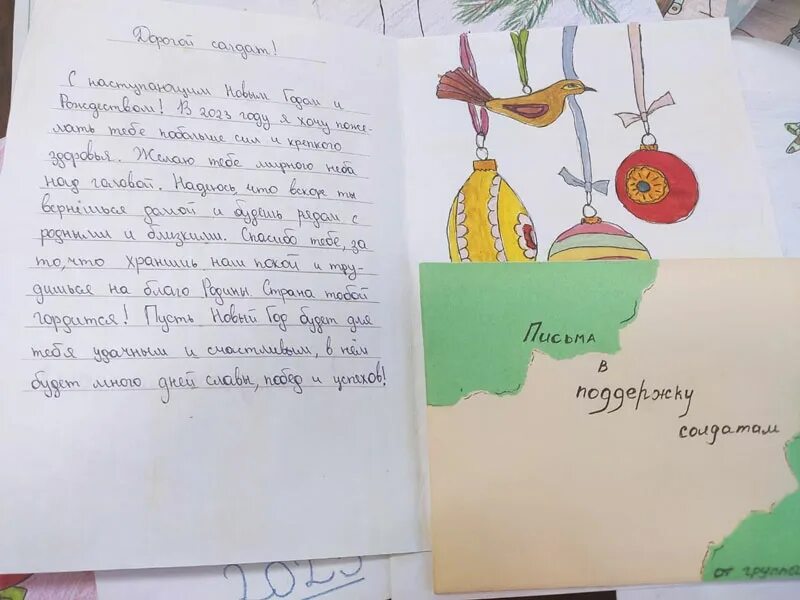 Дорогой салдат!
С наступающим Новым Годом и
Рождеством! В 2023 году я хочу поже-
лать тебе побальше сил и крепкого
здоровья. Желаю тебе мирного неба
над галовой. Надеюсь, что вскоре ты
вернёшься дамой и будешь рядом с
родными и близкими. Спасибо тебе, за
то, что хранишь нам покой и тру-
дишься на благо Родины. Страна тобой
гордится! Пусть Новый Год будет для
тебя удачным и счастливым, в нём
будет много дней славы, побед и успехов!
Письма
в
поддержку
солдатам
от группы
2023